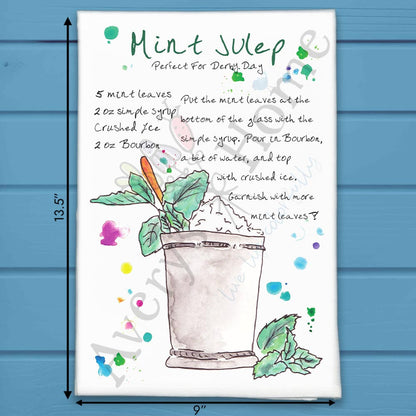 Mint Julep
Perfect For Derby Day
5 mint leaves
2 oz simple syrup
Crushed Ice
2 oz Bourbon
Put the mint leaves at the
bottom of the glass with the
simple syrup. Pour in Bourbon,
a bit of water, and top
with crushed ice.
Garnish with more
mint leaves?
13.5"
9"
Avery's Home